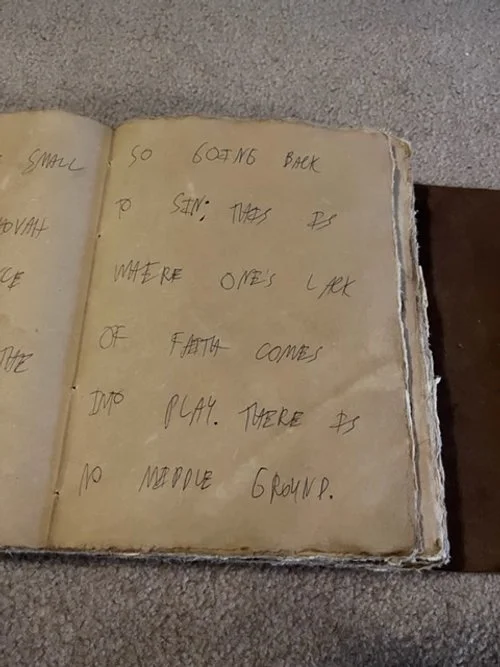 SMALL
OVAH
CE
THE
SO GOING BACK
TO SIN; THIS IS
WHERE ONE'S LACK
OF FAITH COMES
INTO PLAY. THERE IS
NO MIDDLE GROUND.